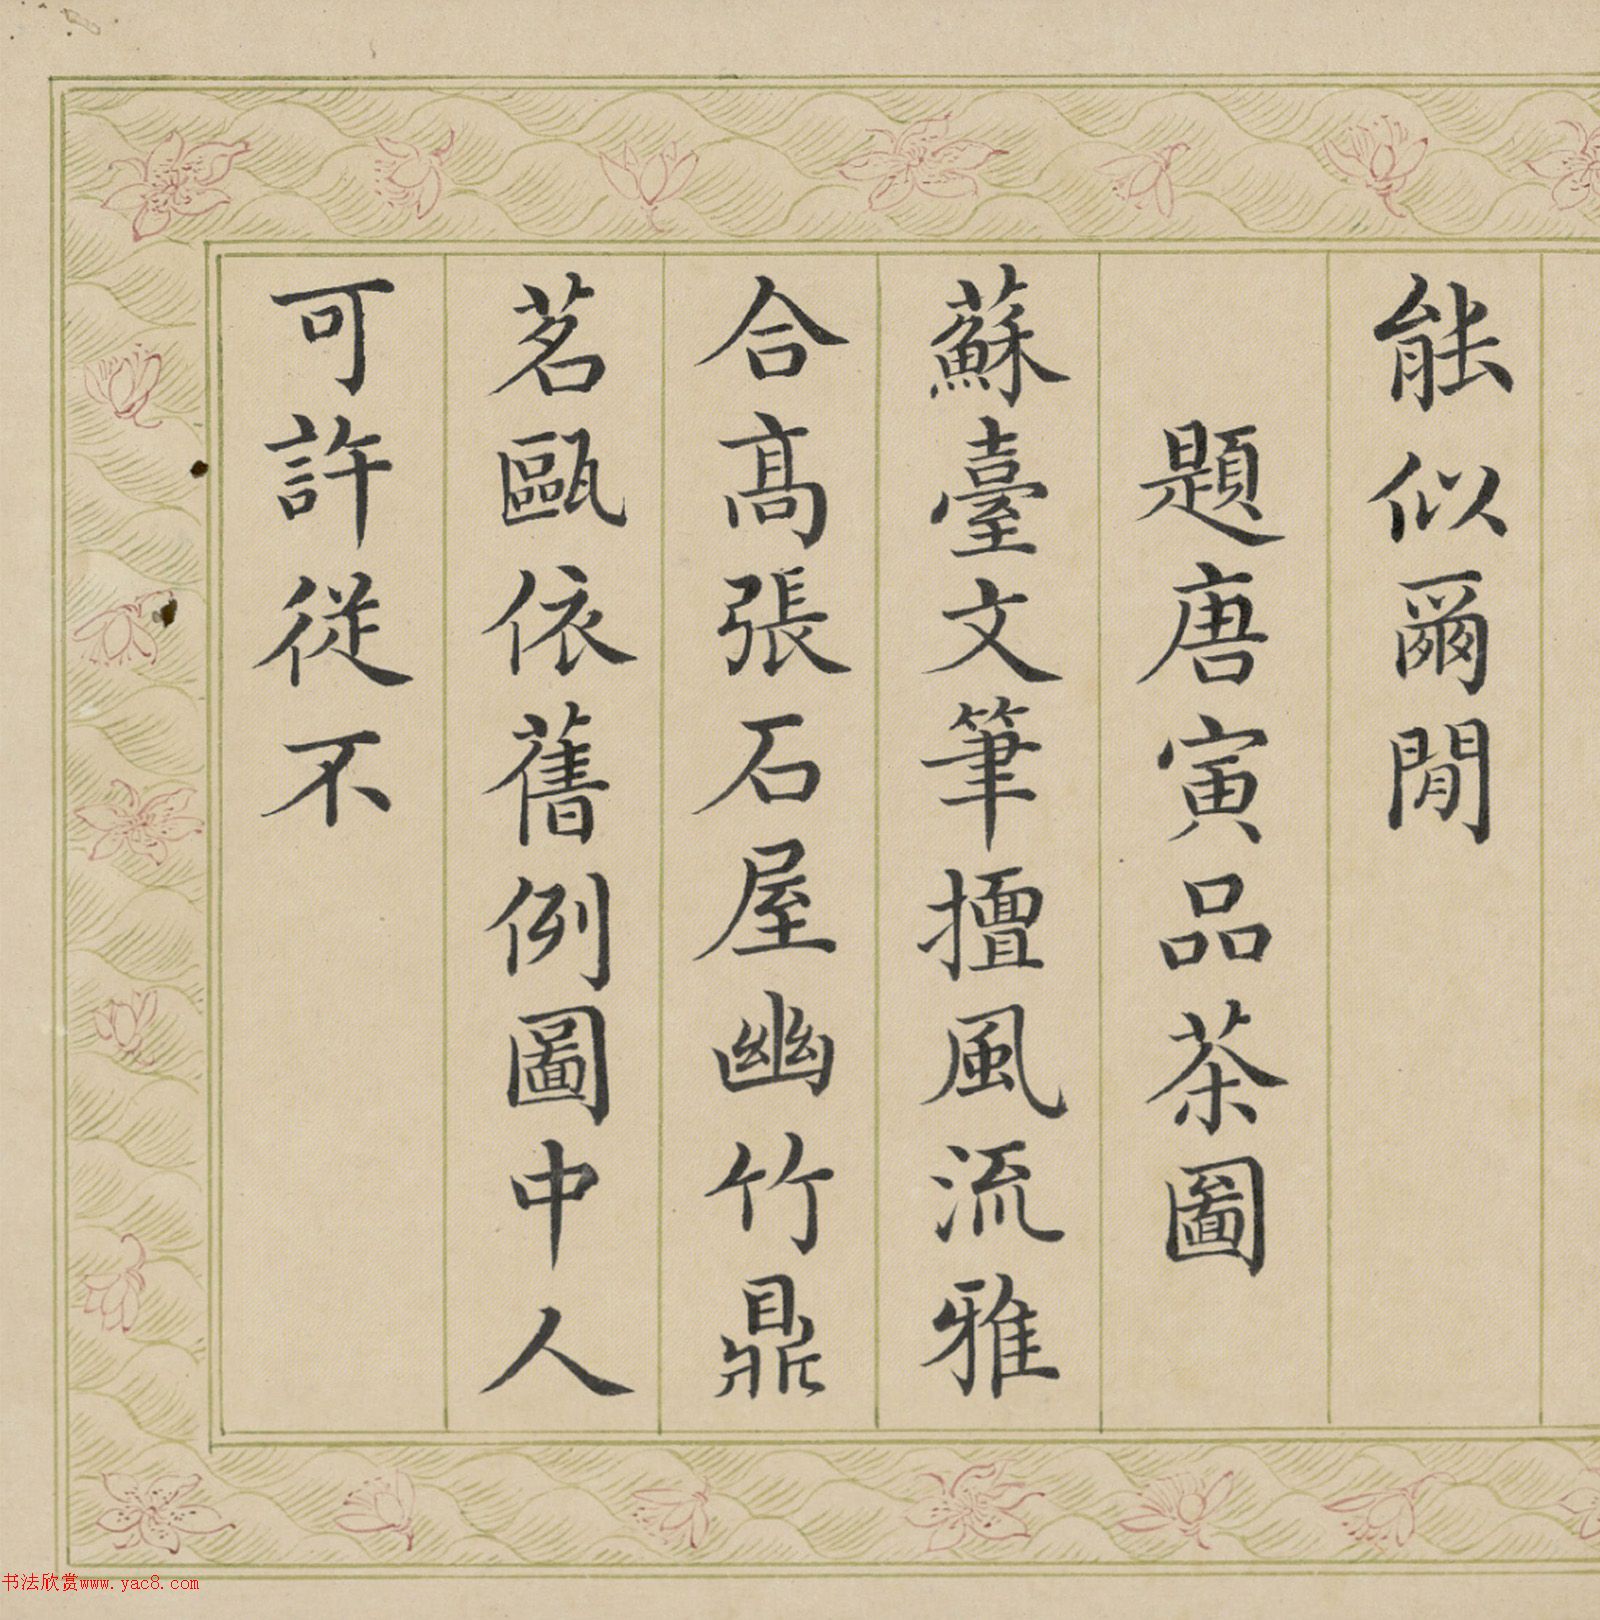 能似爾閒
題唐寅品茶圖
蘇臺文筆擅風流雅
合高張石屋幽竹鼎
茗甌依舊例圖中人
可許從不
书法欣赏www.yac8.com